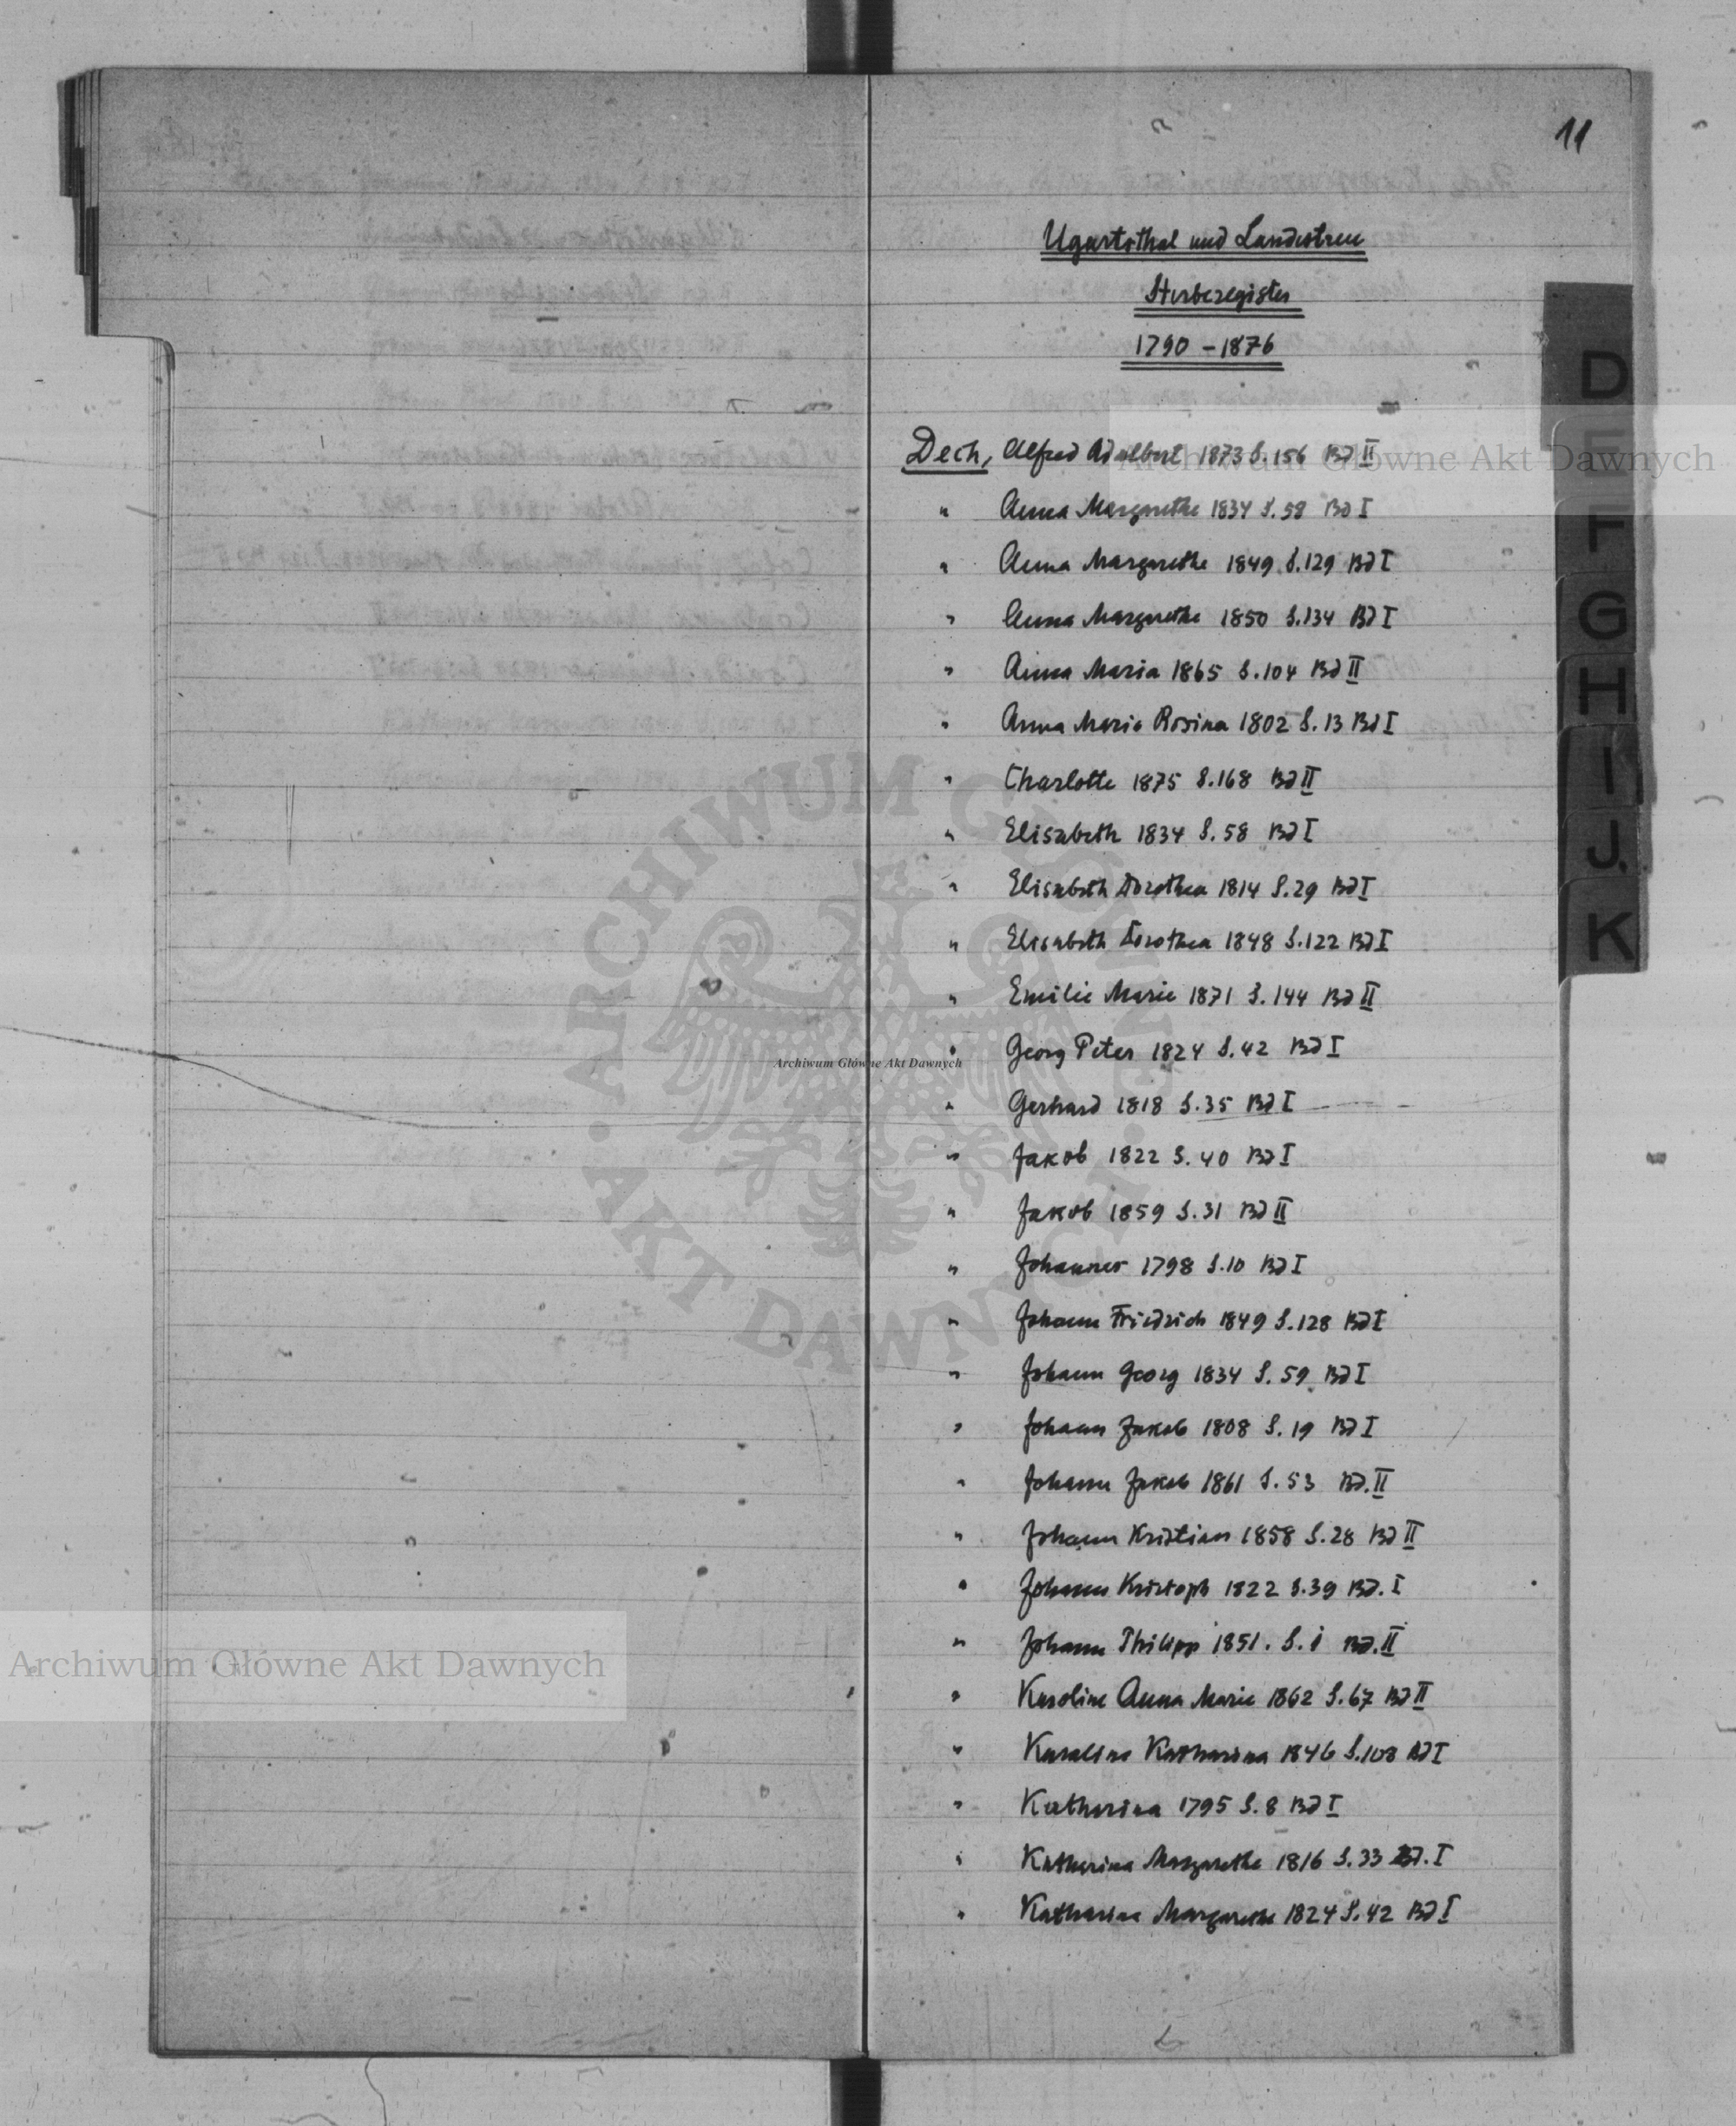 11
Ugartsthal und Landestreu
Sterberegister
1790 - 1876
Dech, Alfred Adalbert 1873 S. 156 Bd II
" Anna Margarethe 1834 S. 58 Bd I
" Anna Margarethe 1849 S. 129 Bd I
" Anna Margarethe 1850 S. 134 Bd I
" Anna Maria 1865 S. 104 Bd II
" Anna Maria Rosina 1802 S. 13 Bd I
" Charlotte 1875 S. 168 Bd II
" Elisabeth 1834 S. 58 Bd I
" Elisabeth Dorothea 1814 S. 29 Bd I
" Elisabeth Dorothea 1848 S. 122 Bd I
" Emilie Marie 1871 S. 144 Bd II
" Georg Peter 1824 S. 42 Bd I
" Gerhard 1818 S. 35 Bd I
" Jakob 1822 S. 40 Bd I
" Jakob 1859 S. 31 Bd II
" Johannes 1798 S. 10 Bd I
" Johann Friedrich 1849 S. 128 Bd I
" Johann Georg 1834 S. 59 Bd I
" Johann Jakob 1808 S. 19 Bd I
" Johann Jakob 1861 S. 53 Bd. II
" Johann Kristian 1858 S. 28 Bd II
" Johann Kristoph 1822 S. 39 Bd. I
" Johann Philipp 1851. S. 1 Bd. II
" Karoline Anna Marie 1862 S. 67 Bd II
" Karolina Katharina 1846 S. 108 Bd I
" Katharina 1795 S. 8 Bd I
" Katharina Margarethe 1816 S. 33 Bd. I
" Katharina Margarethe 1824 S. 42 Bd I
D
E
F
G
H
I
J
K
Archiwum Główne Akt Dawnych
Archiwum Główne Akt Dawnych
Archiwum Główne Akt Dawnych
ARCHIWUM GŁÓWNE
AKT DAWNYCH